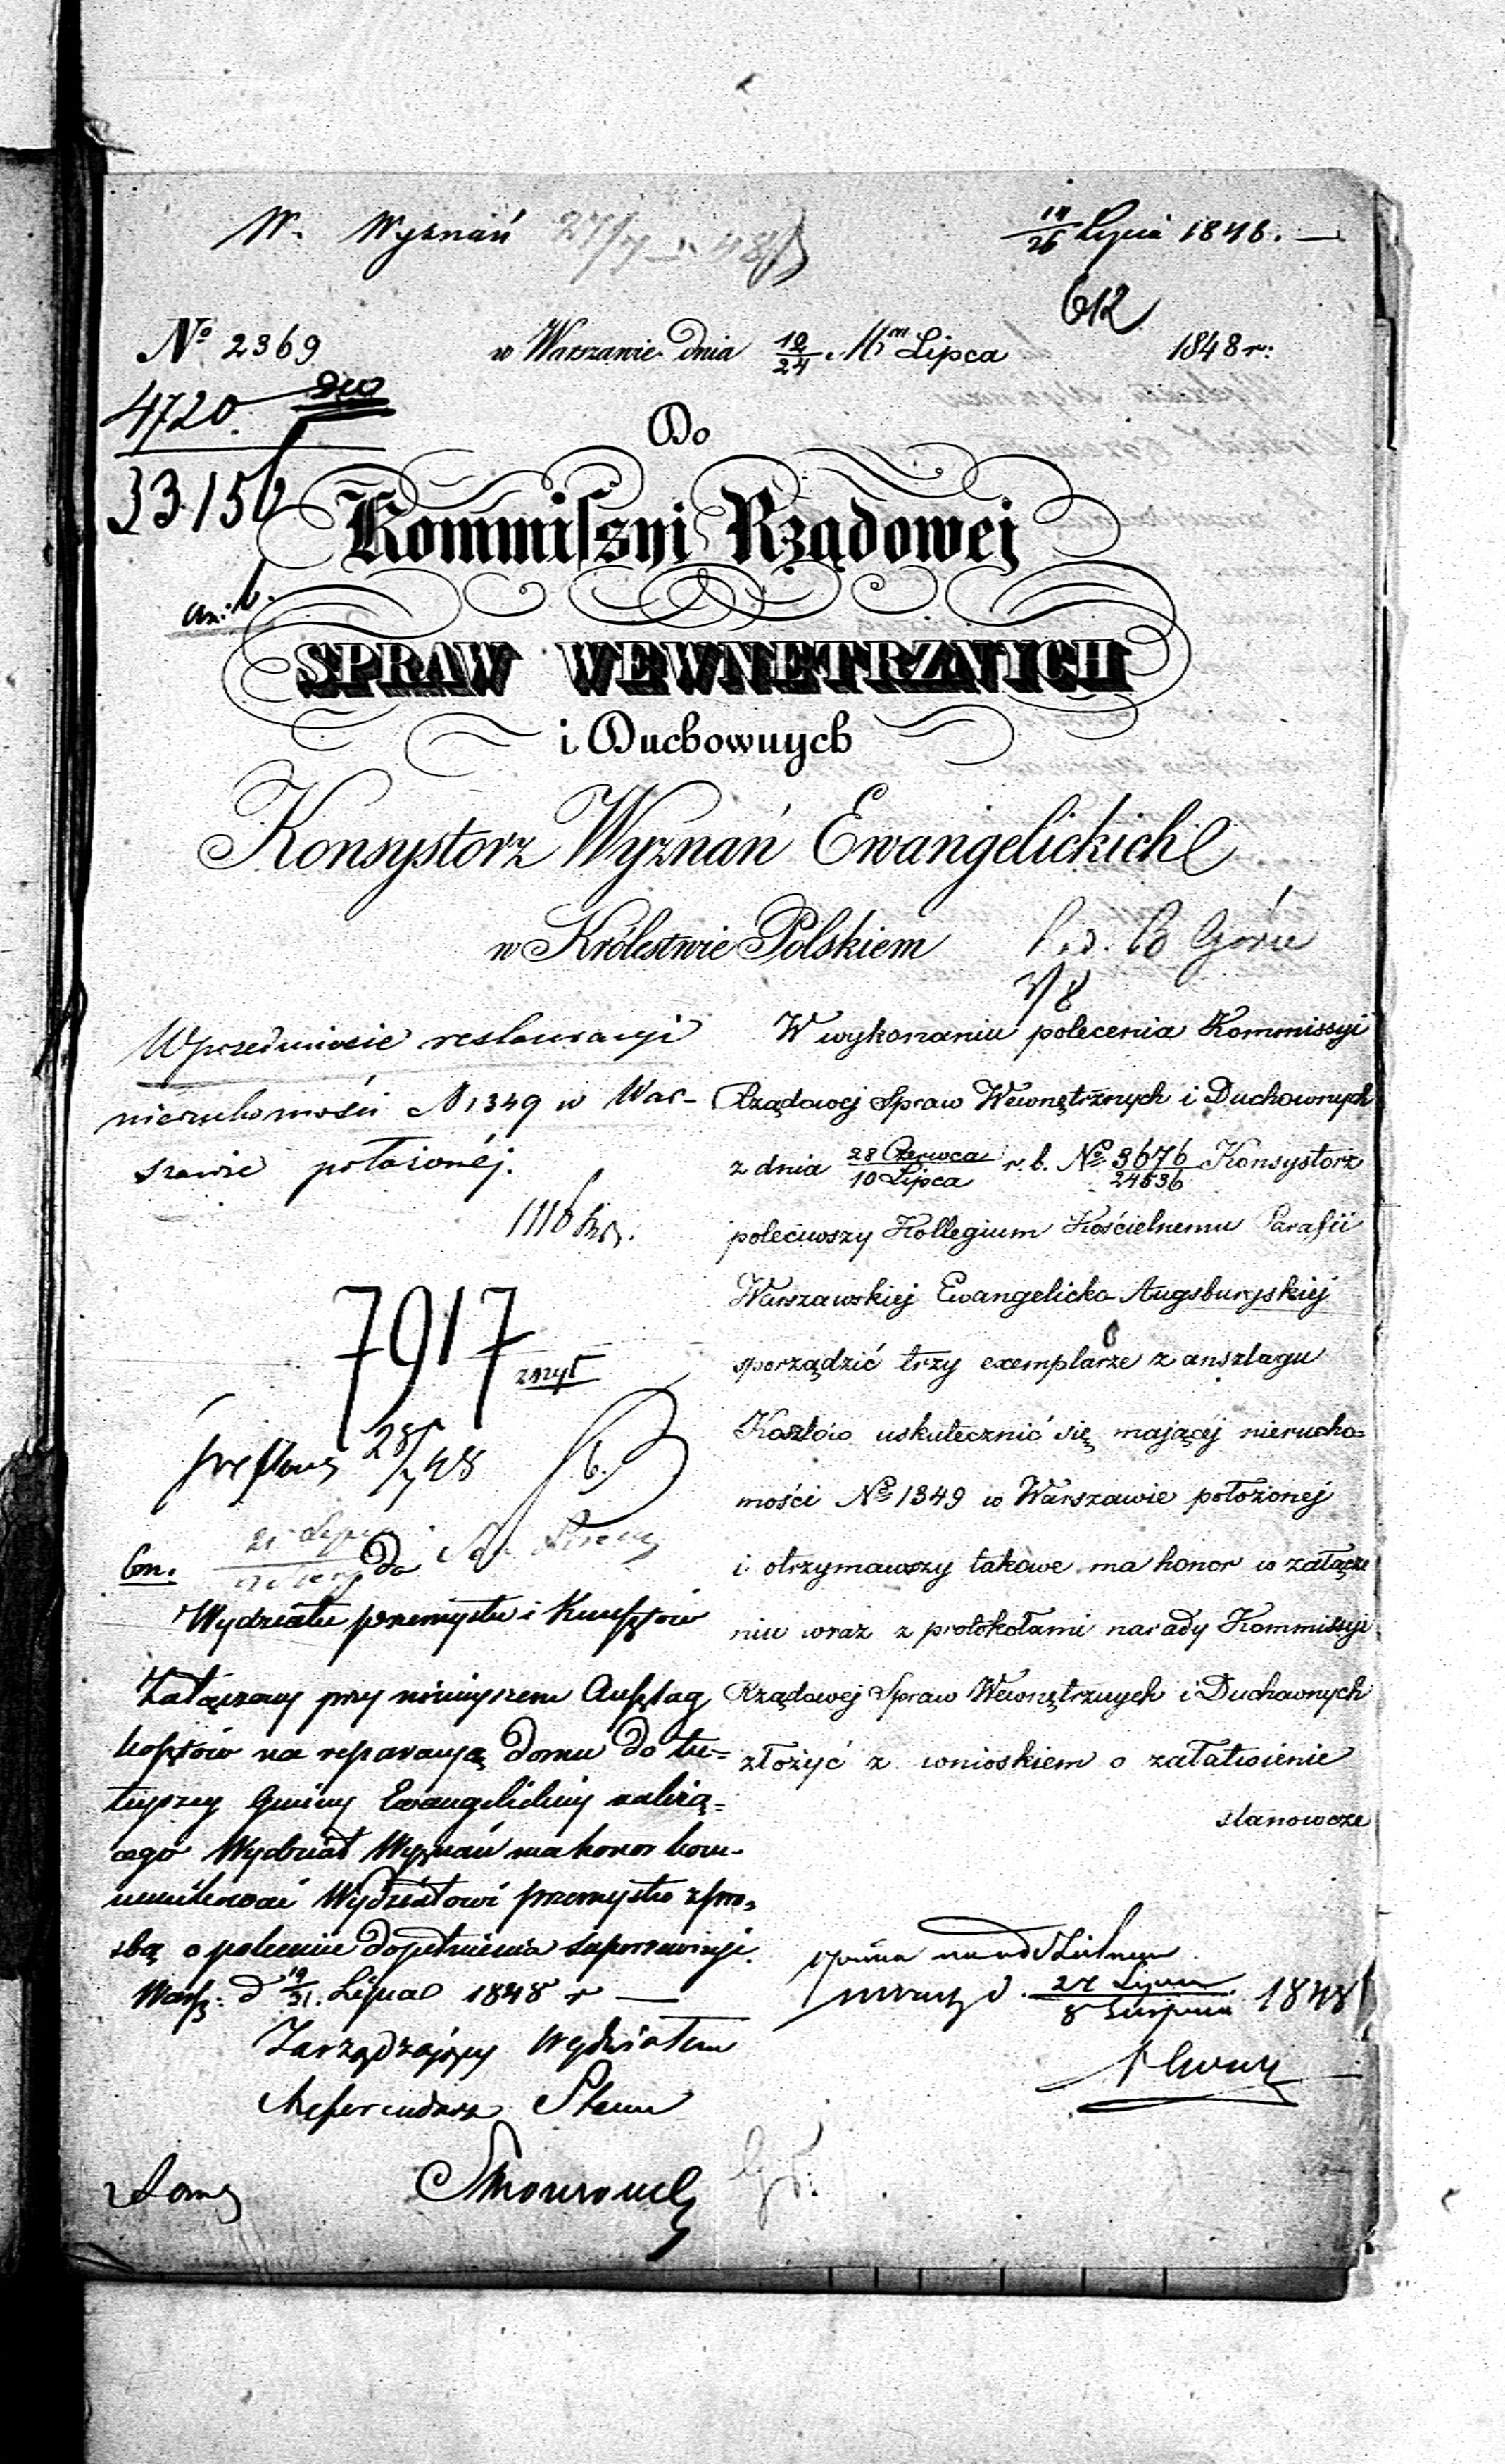 W. Wyznań 27/7 48
14/26 Lipca 1848. —
612
№ 2369 w Warszawie dnia 12/24 Mca Lipca 1848 r:
4720.
33150
Do
Kommissyi Rządowej
SPRAW WEWNĘTRZNYCH
i Duchownych
Konsystorz Wyznań Ewangelickich
w Królestwie Polskiem
W przedmiocie restauracyi
nieruchomości N 1349 w War-
szawie położonéj.
7917
zszyt
28/7 48
Do
Wydziału przemysłu i Kunsztów
Załączony przy niniejszem Anszlag
kosztów na reparacyą domu do tu-
tejszey Gminy Ewangelickiey należą-
cego Wydział Wyznań ma honor kom-
munikować Wydziałowi przemysłu z pro-
śbą o polecenie dopełnienia superrewizyi.
Warsz: d 19/31. Lipca 1848 r —
Zarządzający Wydziałem
Referendarz Stanu
W wykonaniu polecenia Kommissyi
Rządowej Spraw Wewnętrznych i Duchownych
z dnia 28 Czerwca/10 Lipca r. b. № 3676/24536 Konsystorz
poleciwszy Kollegium Kościelnemu Parafii
Warszawskiej Ewangelicko Augsburgskiej
sporządzić trzy exemplarze z anszlagu
Kosztów uskutecznić się mającej nierucho=
mości № 1349 w Warszawie położonej
i otrzymawszy takowe ma honor w załącze
niu wraz z protokołami narady Kommissyi
Rządowej Spraw Wewnętrznych i Duchownych
złożyć z wnioskiem o załatwienie
stanowcze
27 Lipca/8 Sierpnia 1848